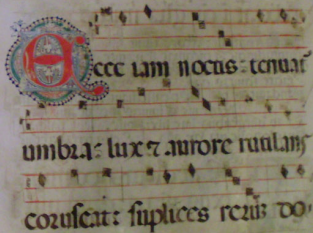 Ecce iam noctis: tenuat
umbra: lux ⁊ aurore rutilans
coruscat: suplices rerum do-